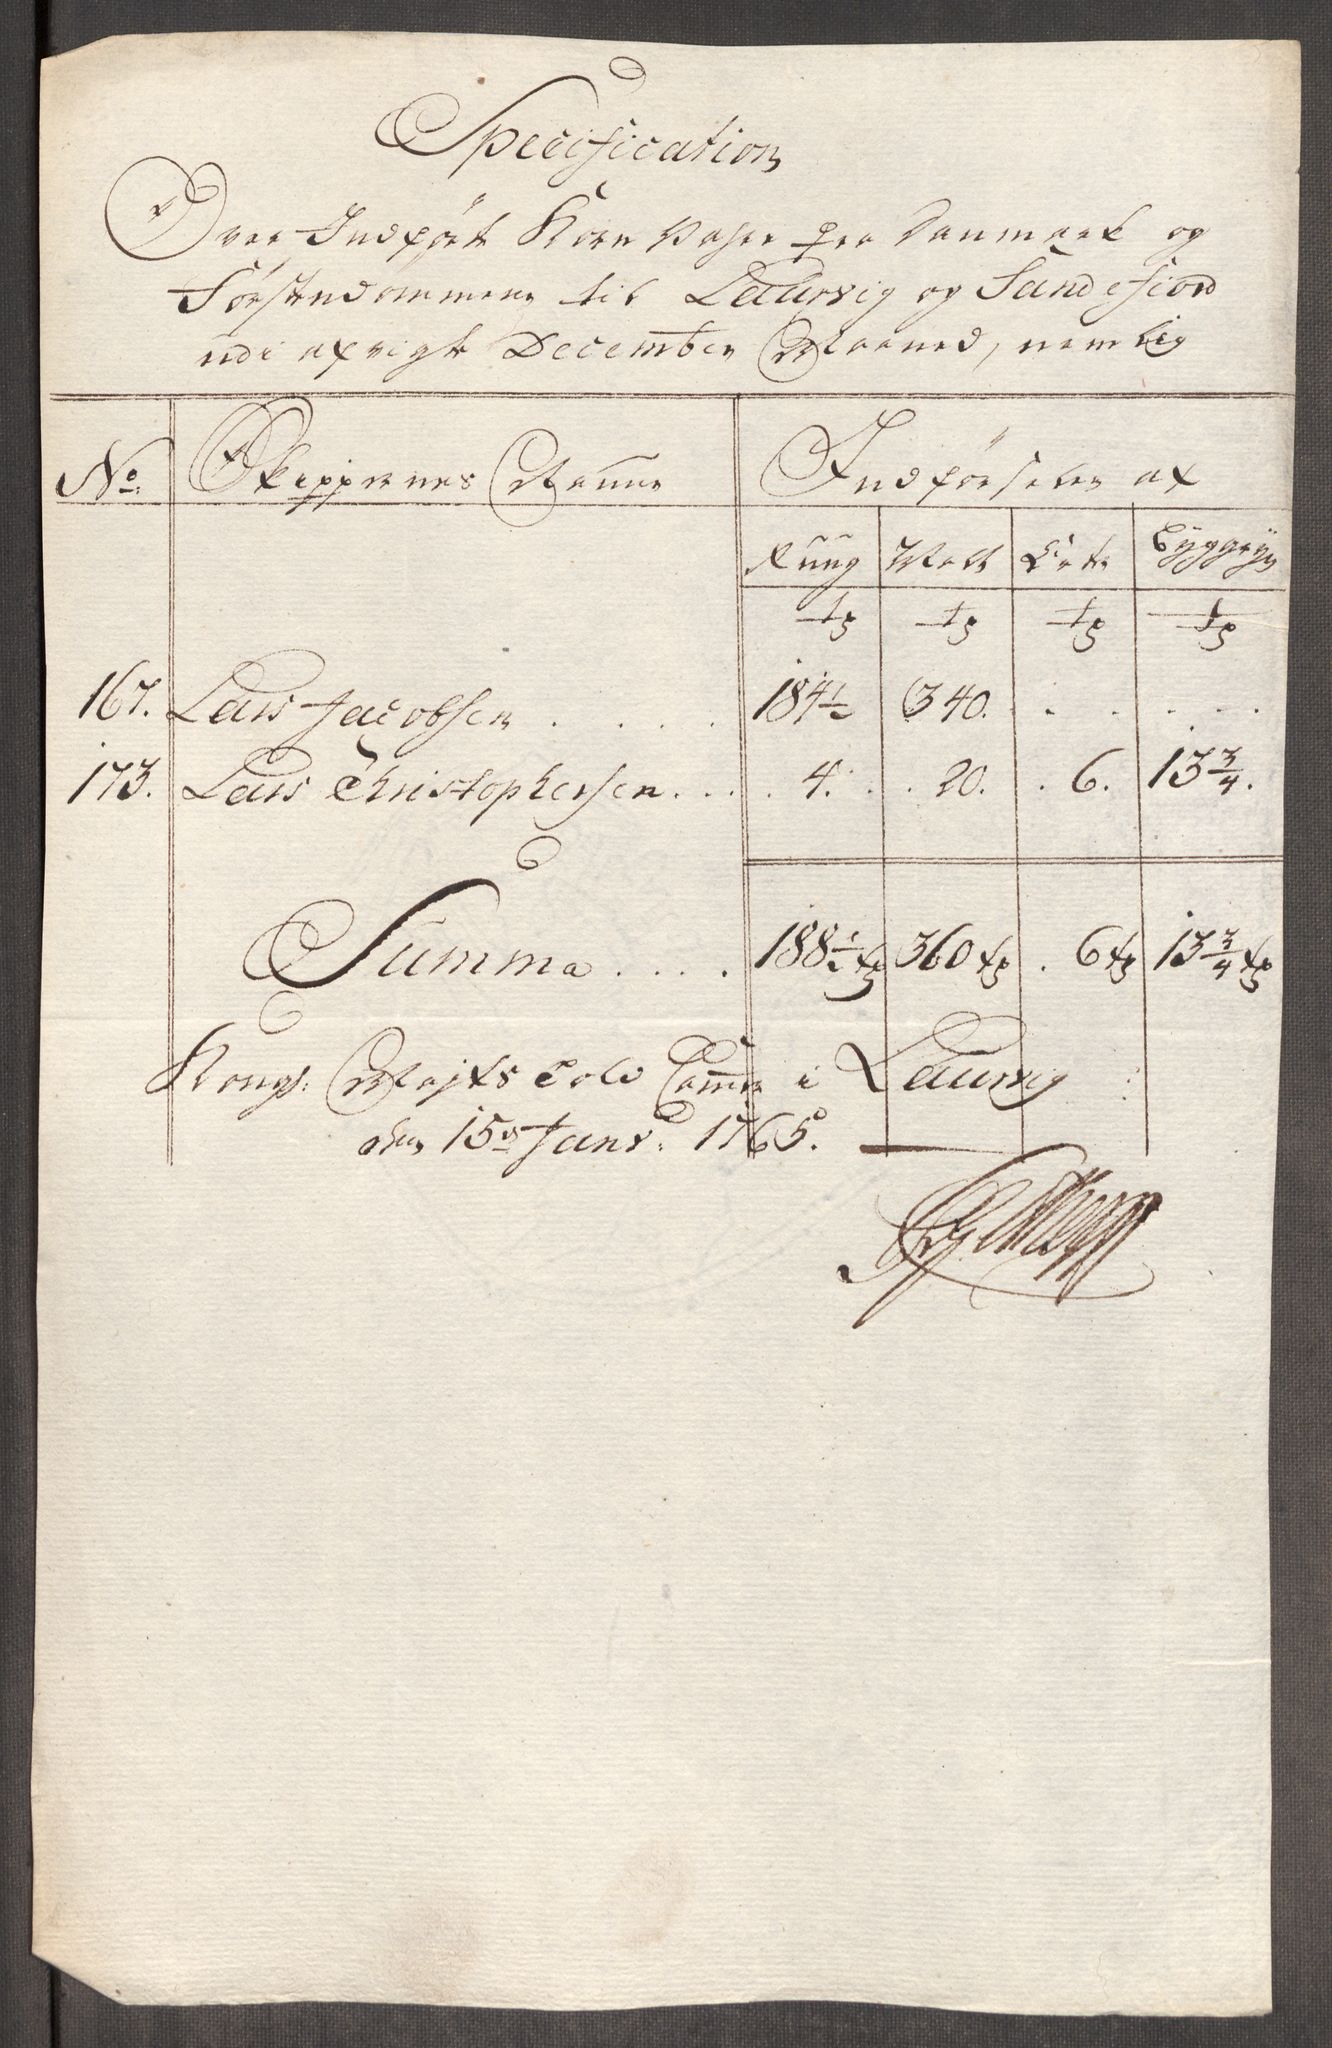 Specification
Over Indført Korn Vahre fra Danmark og
Førstendømmene til Laurvig og Sandefiord
udi afvigte December Maaned, nemlig
No: Skippernes Nafne Indførselen af
Ruug Malt Erter Byggryn
tr tr tr tr
167. Lars Jacobsen . . . . 184 1/2 340. . . . . .
173. Lars Christophersen . . . 4. . . 20. . 6. 13 3/4.
Summa . . . . 188 1/2 tr 360 tr . 6 tr 13 3/4 tr
Kongl: Mayts Told Cammer i Laurvig
den 15de Janv: 1765.